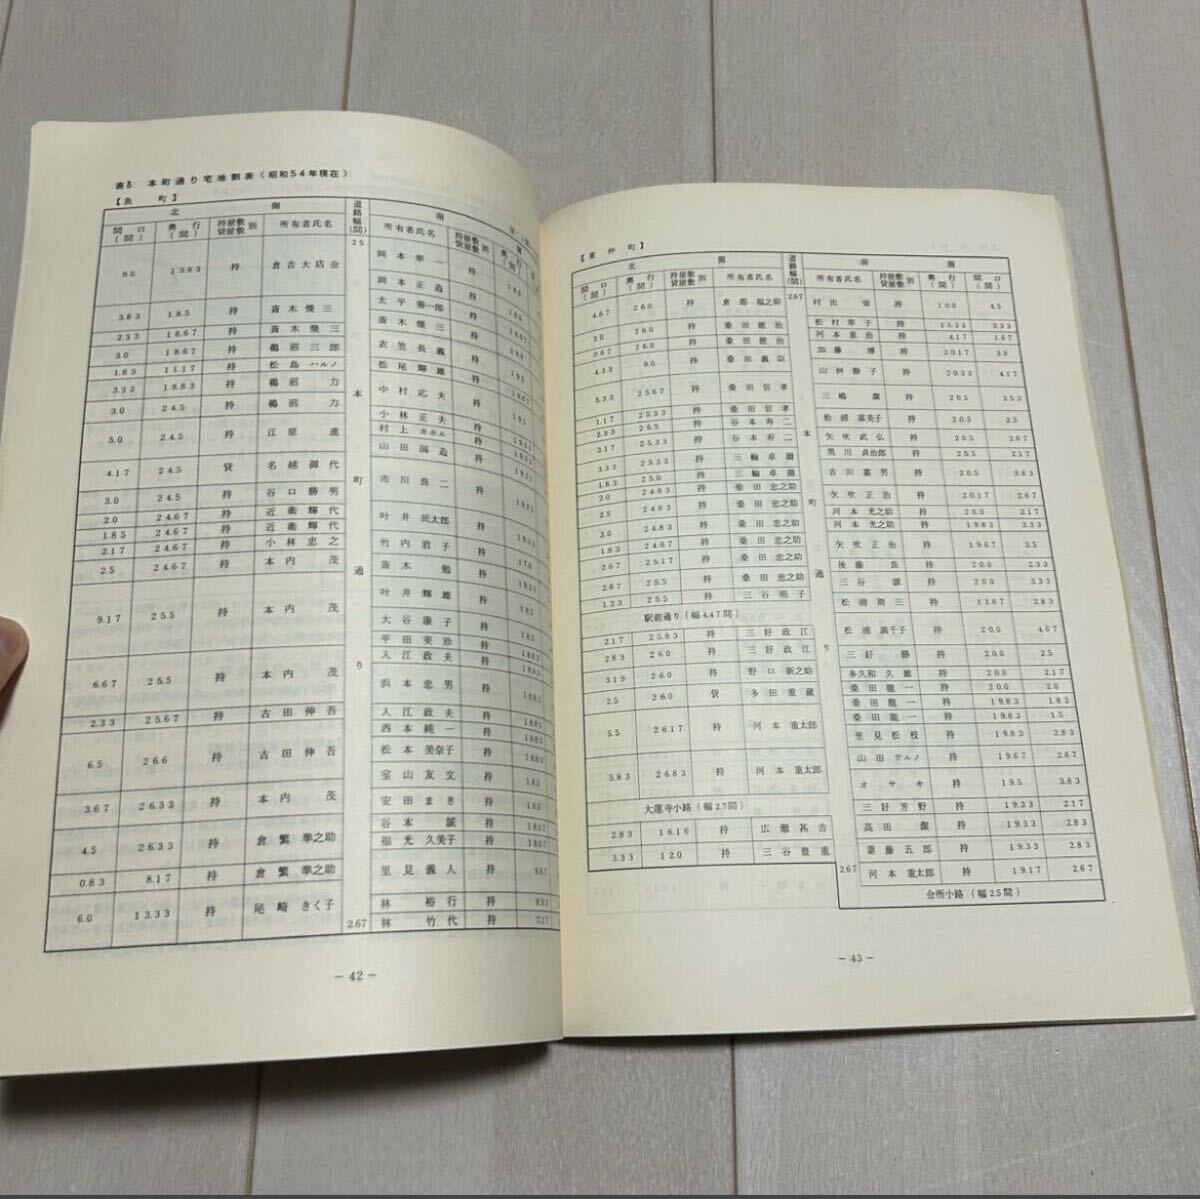 表5 本町通り宅地割表(昭和54年現在)
【魚 町】
北 側 道路幅(間) 南 側
間口(間) 奥行(間) 持屋敷貸屋敷別 所有者氏名 所有者氏名 持屋敷貸屋敷別
9.0 13.83 持 倉吉大店会 2.5 岡本幸一 持
岡本正造 持 18.5
3.83 18.5 持 斎木幾三 太平善一郎 持 18.5
2.33 18.67 持 斎木幾三 斎木幾三 持 18.67
3.0 18.67 持 鵜沼三郎 衣笠長義 持 19.0
1.83 11.17 持 松島ハルノ 松尾輝雄 持 19.5
3.33 18.83 持 鵜沼力 中村応夫 持 19.67
3.0 24.5 持 鵜沼力 小林正夫 持 19.5
5.0 24.5 持 江原進 村上カホル 持 19.33
山田国造 持 19.33
4.17 24.5 貸 名越御代 市川良二 持 19.33
3.0 24.5 持 谷口勝男
2.0 24.67 持 近衛輝代 叶井民太郎 持 19.33
1.85 24.67 持 近衛輝代
2.17 24.67 持 小林忠之 竹内君子 持 17.0
2.5 24.67 持 本内茂 斎木勉 持 19.51
9.17 25.5 持 本内茂 叶井輝雄 持 18.5
大谷康子 持 18.5
平田実珍 持 18.83
6.67 25.5 持 本内茂 入江政夫 持 18.83
浜本忠男 持 18.83
2.33 25.67 持 古田伸吾 入江政夫 持 18.83
6.5 26.6 持 古田伸吾 西本純一 持 18.83
松本美奈子 持 18.83
室山友文 持 18.5
3.67 26.33 持 本内茂 安田まき 持 18.5
4.5 26.33 持 倉繁準之助 谷本誠 持 18.67
福光久美子 持 18.67
0.83 8.17 持 倉繁準之助 里見義人 持 9.67
6.0 13.33 持 尾崎きく子 林裕行 持 8.33
2.67 林竹代 持 7.17
本町通り
－42－
【東 仲 町】
北 側 道路幅(間) 南 側
間口(間) 奥行(間) 持屋敷貸屋敷別 所有者氏名 所有者氏名 持屋敷貸屋敷別 奥行(間) 間口(間)
4.67 26.0 持 倉都福之助 2.67 村出栄 持 10.0 4.5
3.0 26.0 持 桑田徳治 松村章子 持 11.33 2.33
0.67 26.0 持 桑田徳治 河本重治 持 4.17 1.67
4.33 9.0 持 桑田義臣 加藤博 持 20.17 3.0
5.33 25.67 持 桑田信孝 山桝静子 持 20.33 4.17
1.17 25.33 持 桑田信孝 三嶋潔 持 20.5 3.53
2.33 25.5 持 谷本寿二 松浦富美子 持 20.5 2.5
3.17 25.33 持 谷本寿二 矢吹武弘 持 20.5 2.67
3.33 25.33 持 三輪卓爾 黒川良治郎 持 20.5 2.17
1.83 25.0 持 三輪卓爾 吉川嘉男 持 20.5 3.83
2.0 24.83 持 桑田忠之助 矢吹正治 持 20.17 2.67
3.0 24.83 持 桑田忠之助 河本光之助 持 20.0 2.17
1.83 24.67 持 桑田忠之助 河本光之助 持 19.83 2.33
2.67 25.17 持 桑田忠之助 矢吹正治 持 19.67 3.5
2.67 25.5 持 桑田忠之助 後藤良 持 20.0 2.33
1.33 25.5 持 三谷昭子 三谷誠 持 20.0 2.33
駅前通り(幅4.47間) 松浦周三 持 11.67 2.83
2.17 25.83 持 三好政江 松浦満千子 持 20.0 4.67
2.83 26.0 持 三好政江 三好勝 持 20.0 2.5
3.19 26.0 持 野口新之助 多久和久雄 持 20.0 2.17
2.5 26.0 貸 多田重蔵 桑田龍一 持 20.0 2.0
5.5 26.17 持 河本重太郎 桑田龍一 持 19.83 1.83
桑田龍一 持 19.83 1.5
里見松枝 持 19.83 2.83
5.83 26.83 持 河本重太郎 山田テルノ 持 19.67 2.67
大蓮寺小路(幅2.7間) オサキ 持 19.5 3.83
三好芳野 持 19.33 2.17
2.83 16.16 持 広瀬甚吉 高田潔 持 19.33 2.83
3.33 12.0 持 三谷豊重 妻藤五郎 持 19.33 2.83
2.67 河本重太郎 持 19.17 2.67
会所小路(幅2.5間)
本町通り
－43－